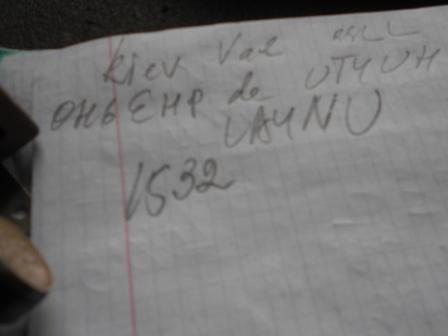 Kiev Val
OH6EHP de UT4UH
UA4NU
1532